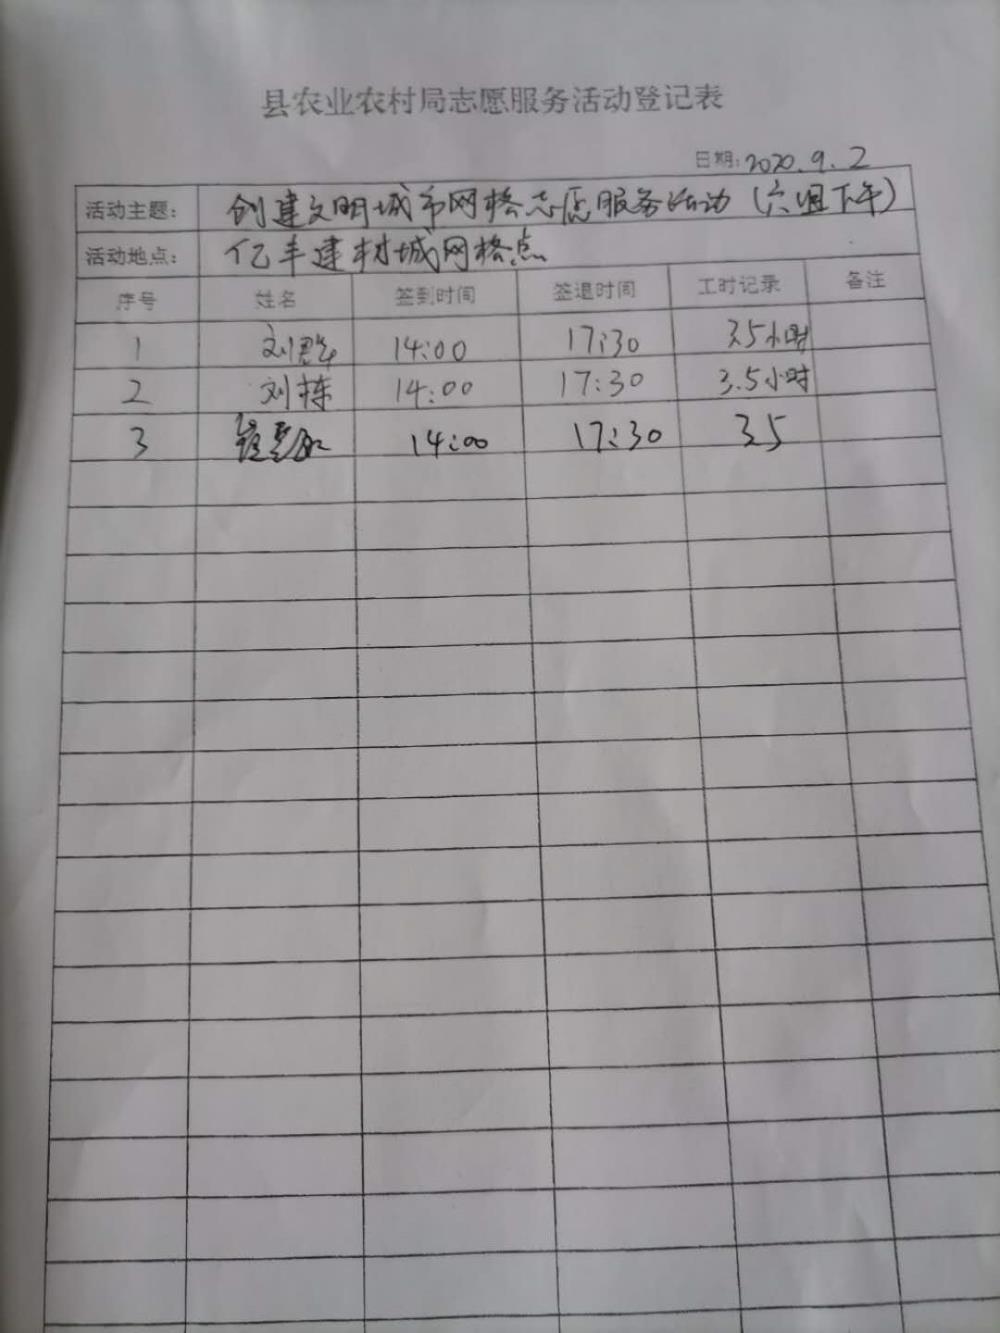 县农业农村局志愿服务活动登记表
日期:2020.9.2
活动主题: 创建文明城市网格志愿服务活动(六组下午)
活动地点: 亿丰建材城网格点
序号 姓名 签到时间 签退时间 工时记录 备注
1 刘 14:00 17:30 3.5小时
2 刘栋 14:00 17:30 3.5小时
3 14:00 17:30 3.5